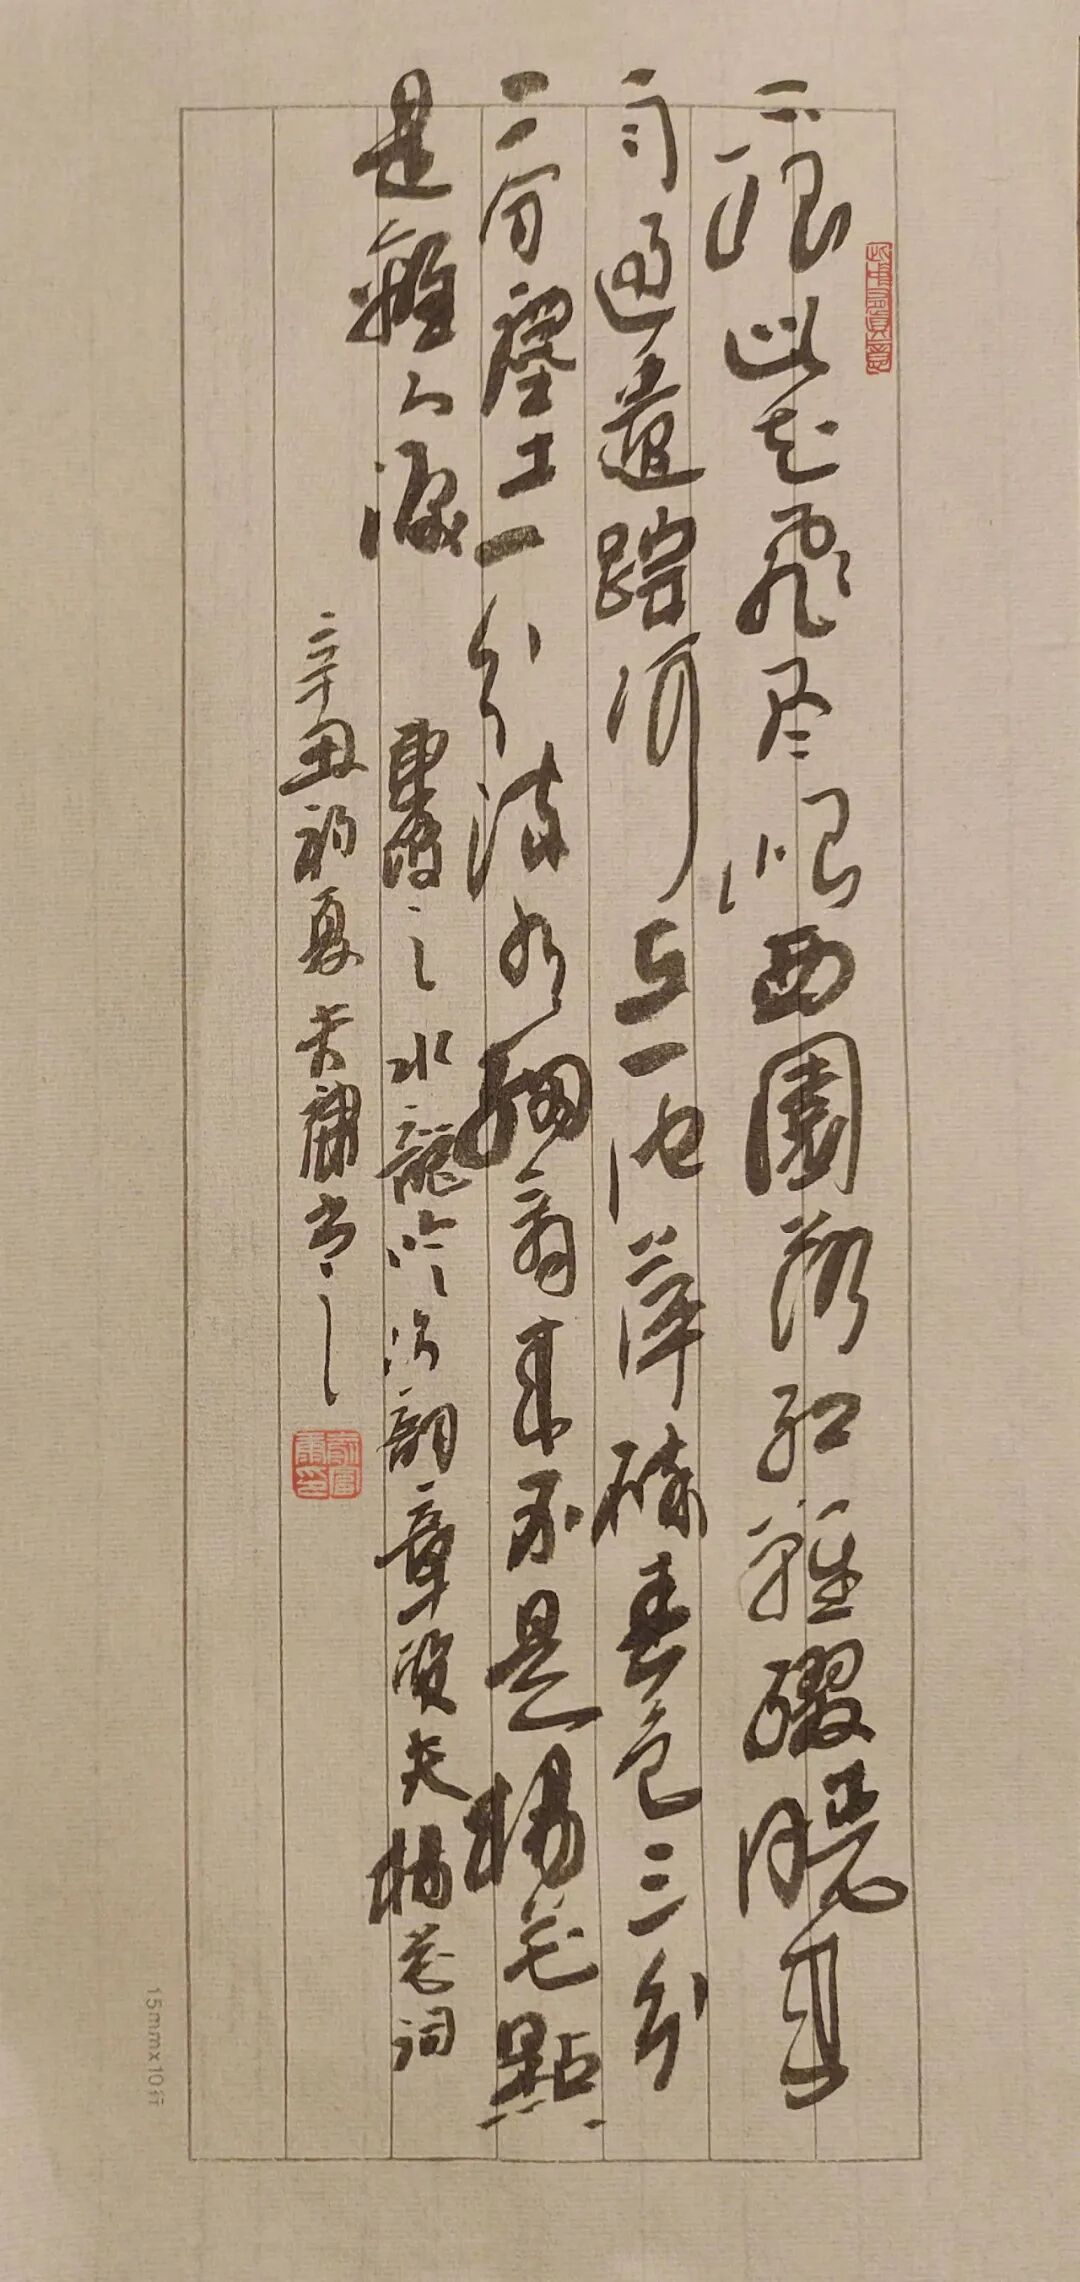 不恨此花飛尽恨西園落紅難綴曉來
雨過遺踪何在一池萍碎春色三分
二分塵土一分流水細看來不是楊花點點
是離人淚 東坡之水龍吟次韻章質夫楊花詞
辛丑初夏 書之
15mmx10行